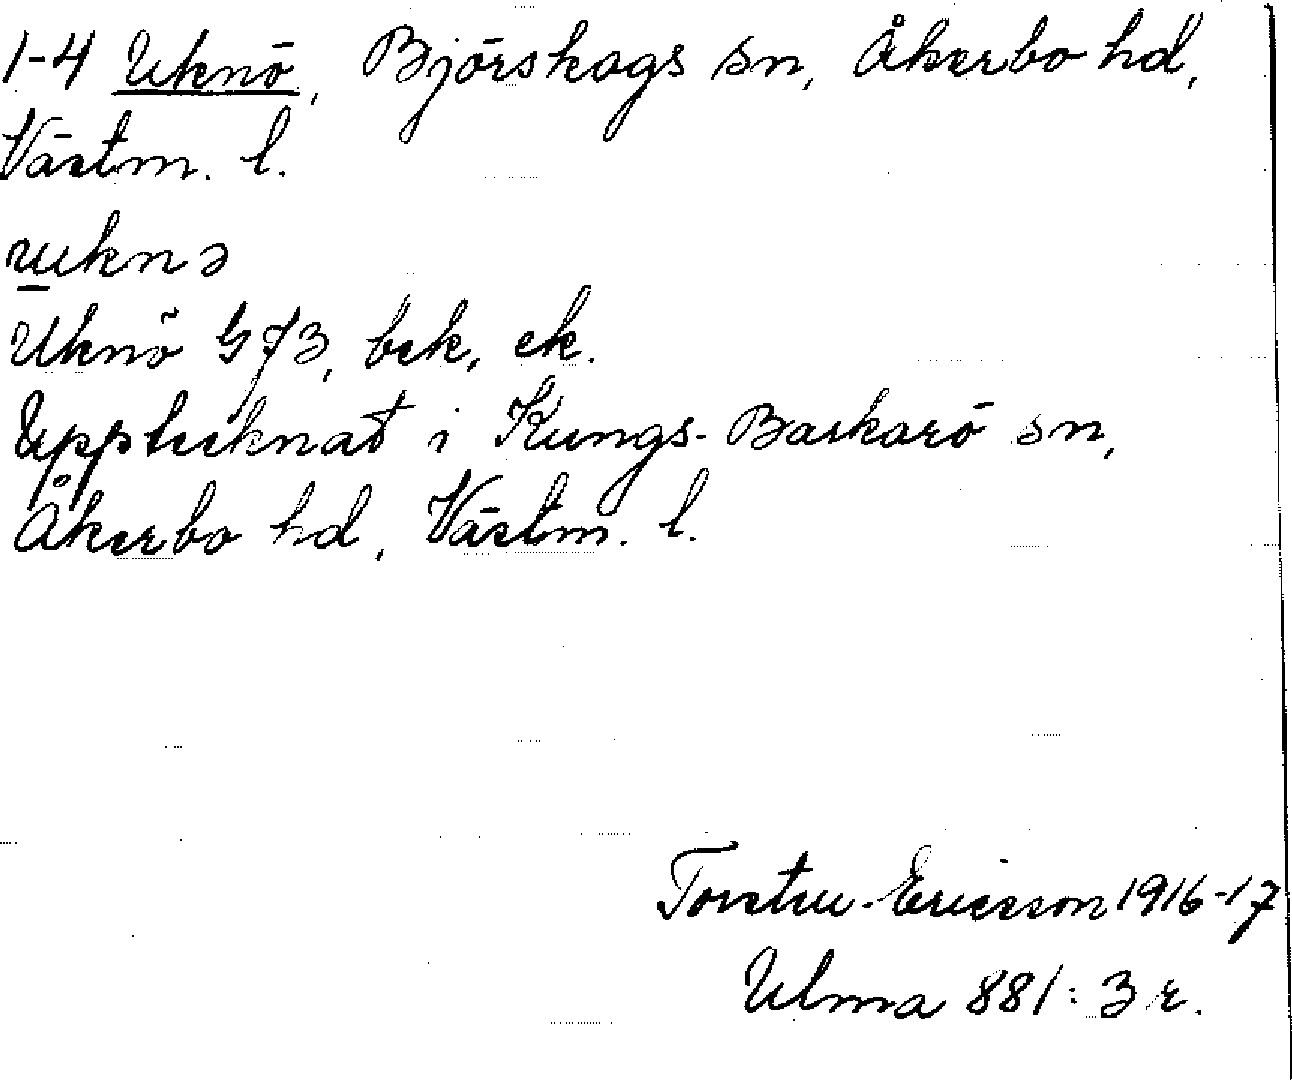 1-4 Uknö, Björskogs sn, Åkerbo hd,
Västm. l.
uknə
Uknö G73, bek, ek.
Upptecknat i Kungs-Barkarö sn,
Åkerbo hd, Västm. l.
Torsten Ericsson 1916-17
Ulma 881: 3 r.